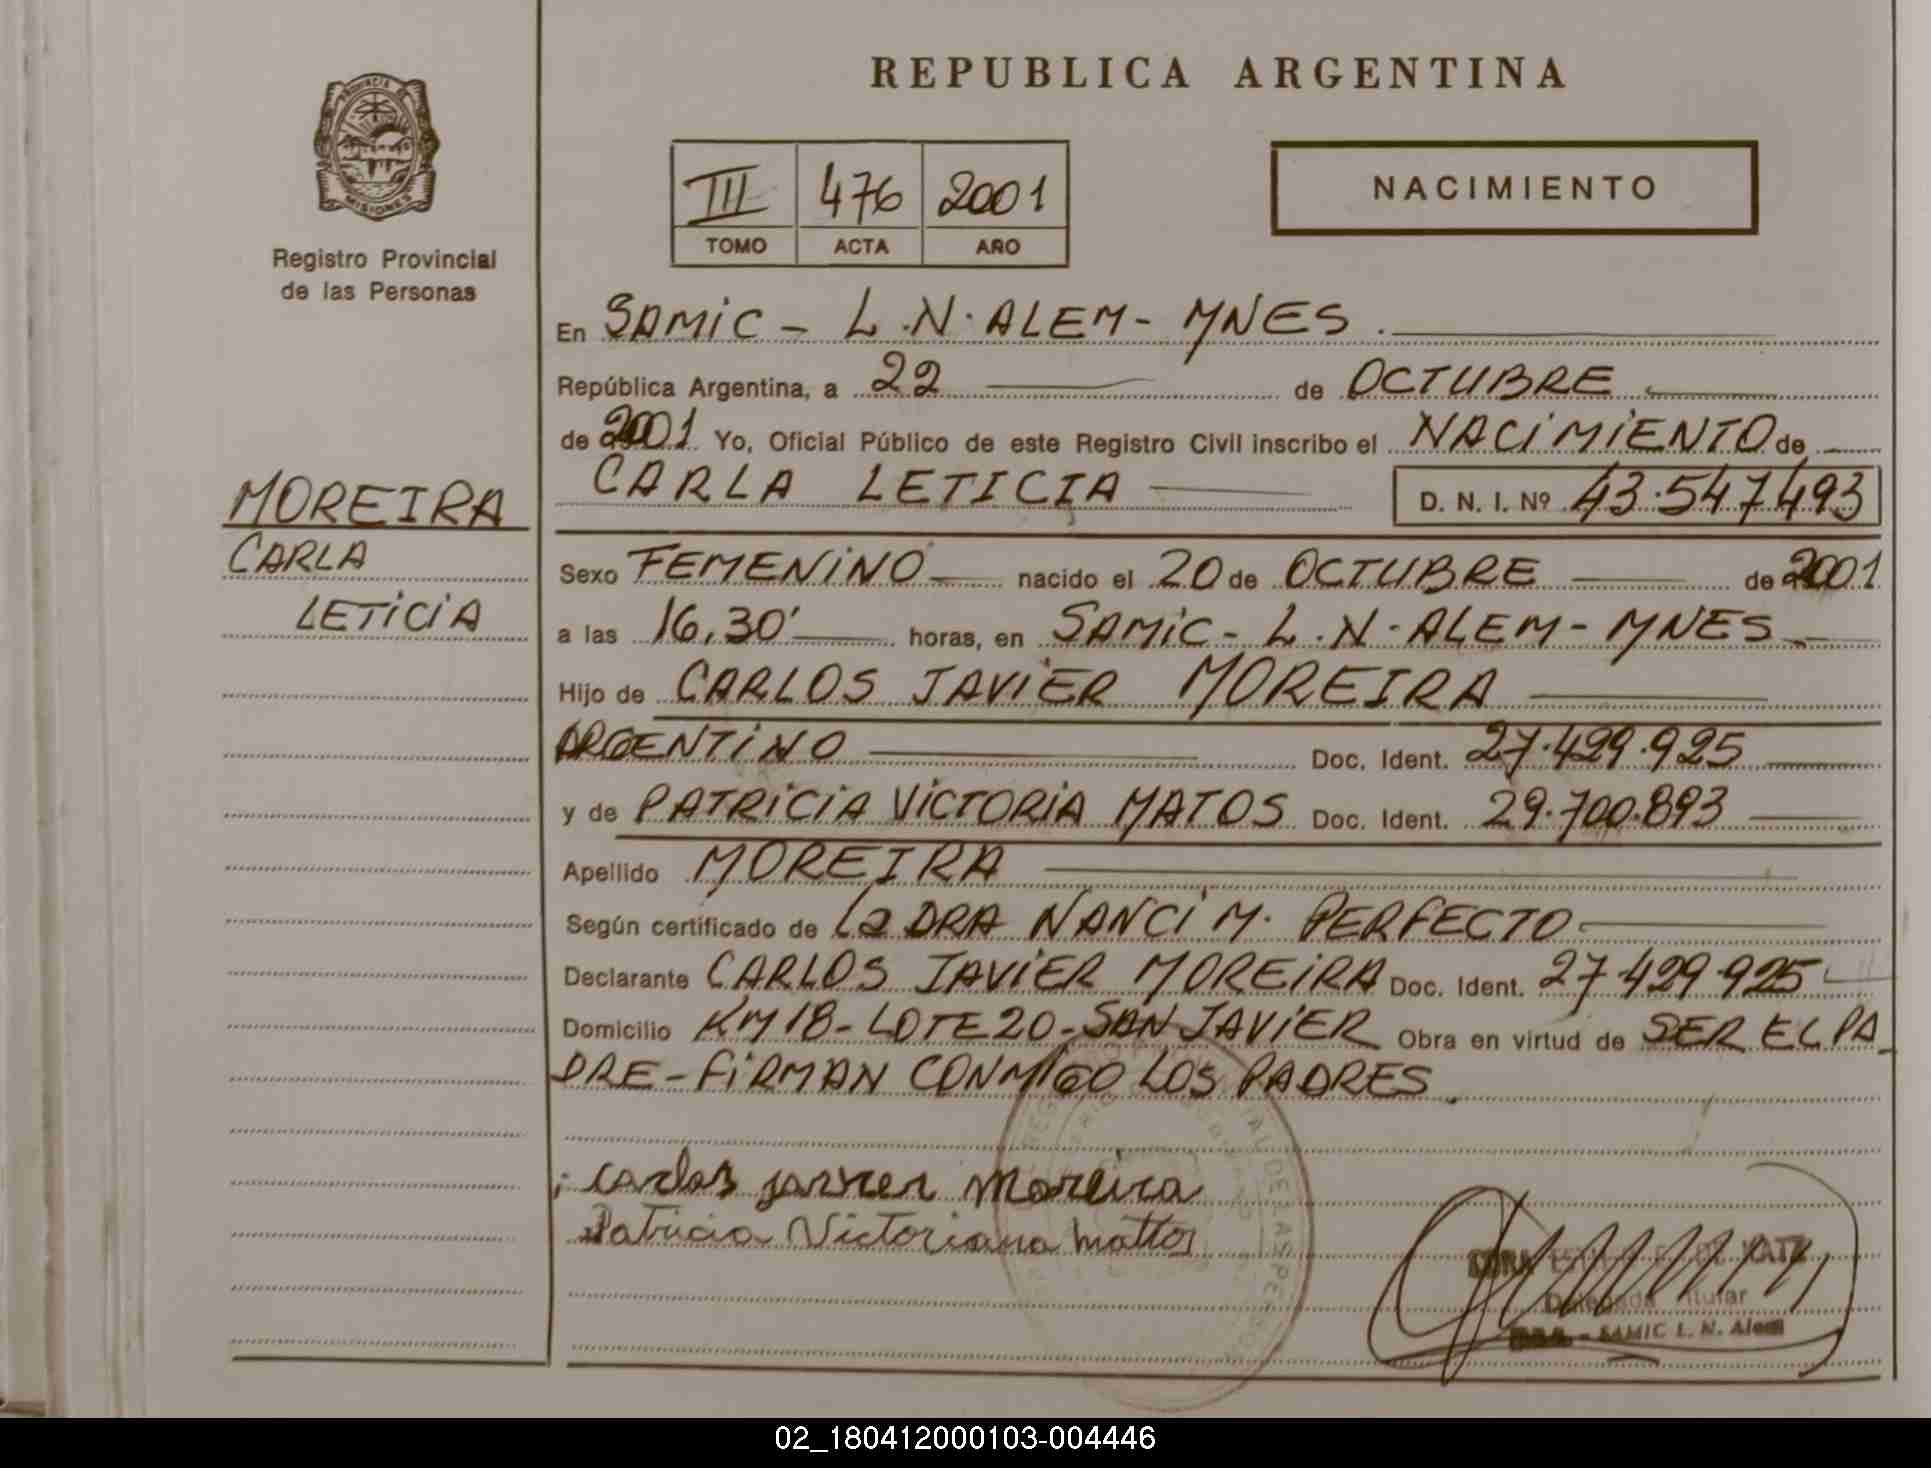 REPUBLICA ARGENTINA
PROVINCIA DE
MISIONES
Registro Provincial
de las Personas
III 476 2001
TOMO ACTA AÑO
NACIMIENTO
En SAMIC - L.N. ALEM - MNES.
República Argentina, a 22 de OCTUBRE
de 2001 Yo, Oficial Público de este Registro Civil inscribo el NACIMIENTO de
CARLA LETICIA D. N. I. Nº 43.547.493
MOREIRA
CARLA
LETICIA
Sexo FEMENINO nacido el 20 de OCTUBRE de 2001
a las 16,30' horas, en SAMIC - L.N. ALEM - MNES
Hijo de CARLOS JAVIER MOREIRA
ARGENTINO Doc. Ident. 27.429.925
y de PATRICIA VICTORIA MATOS Doc. Ident. 29.700.893
Apellido MOREIRA
Según certificado de La DRA NANCI M. PERFECTO
Declarante CARLOS JAVIER MOREIRA Doc. Ident. 27.429.925
Domicilio KM 18 - LOTE 20 - SAN JAVIER Obra en virtud de SER EL PA-
DRE - FIRMAN CONMIGO LOS PADRES.
Carlos javier Moreira
Patricia Victoriana mattos
Delegada Titular
SAMIC L. N. Alem
02_180412000103-004446